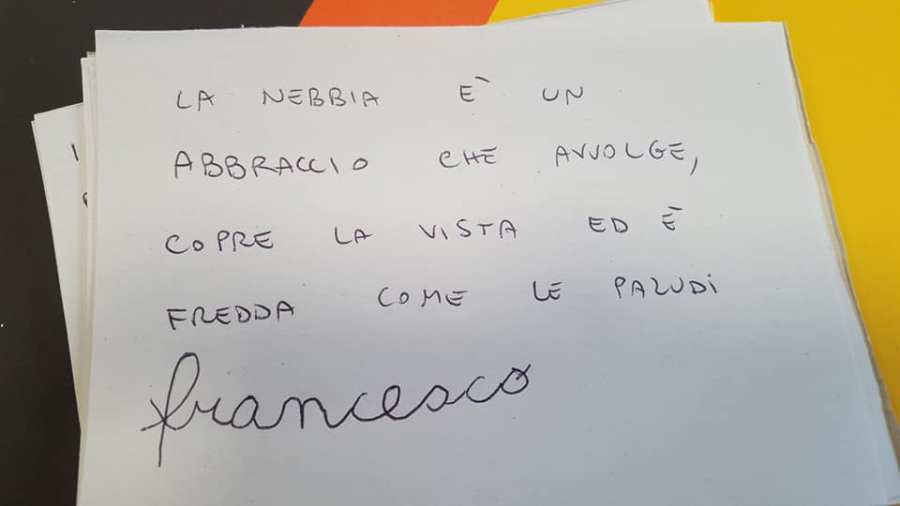 LA NEBBIA È UN
ABBRACCIO CHE AVVOLGE,
COPRE LA VISTA ED È
FREDDA COME LE PALUDi
francesco